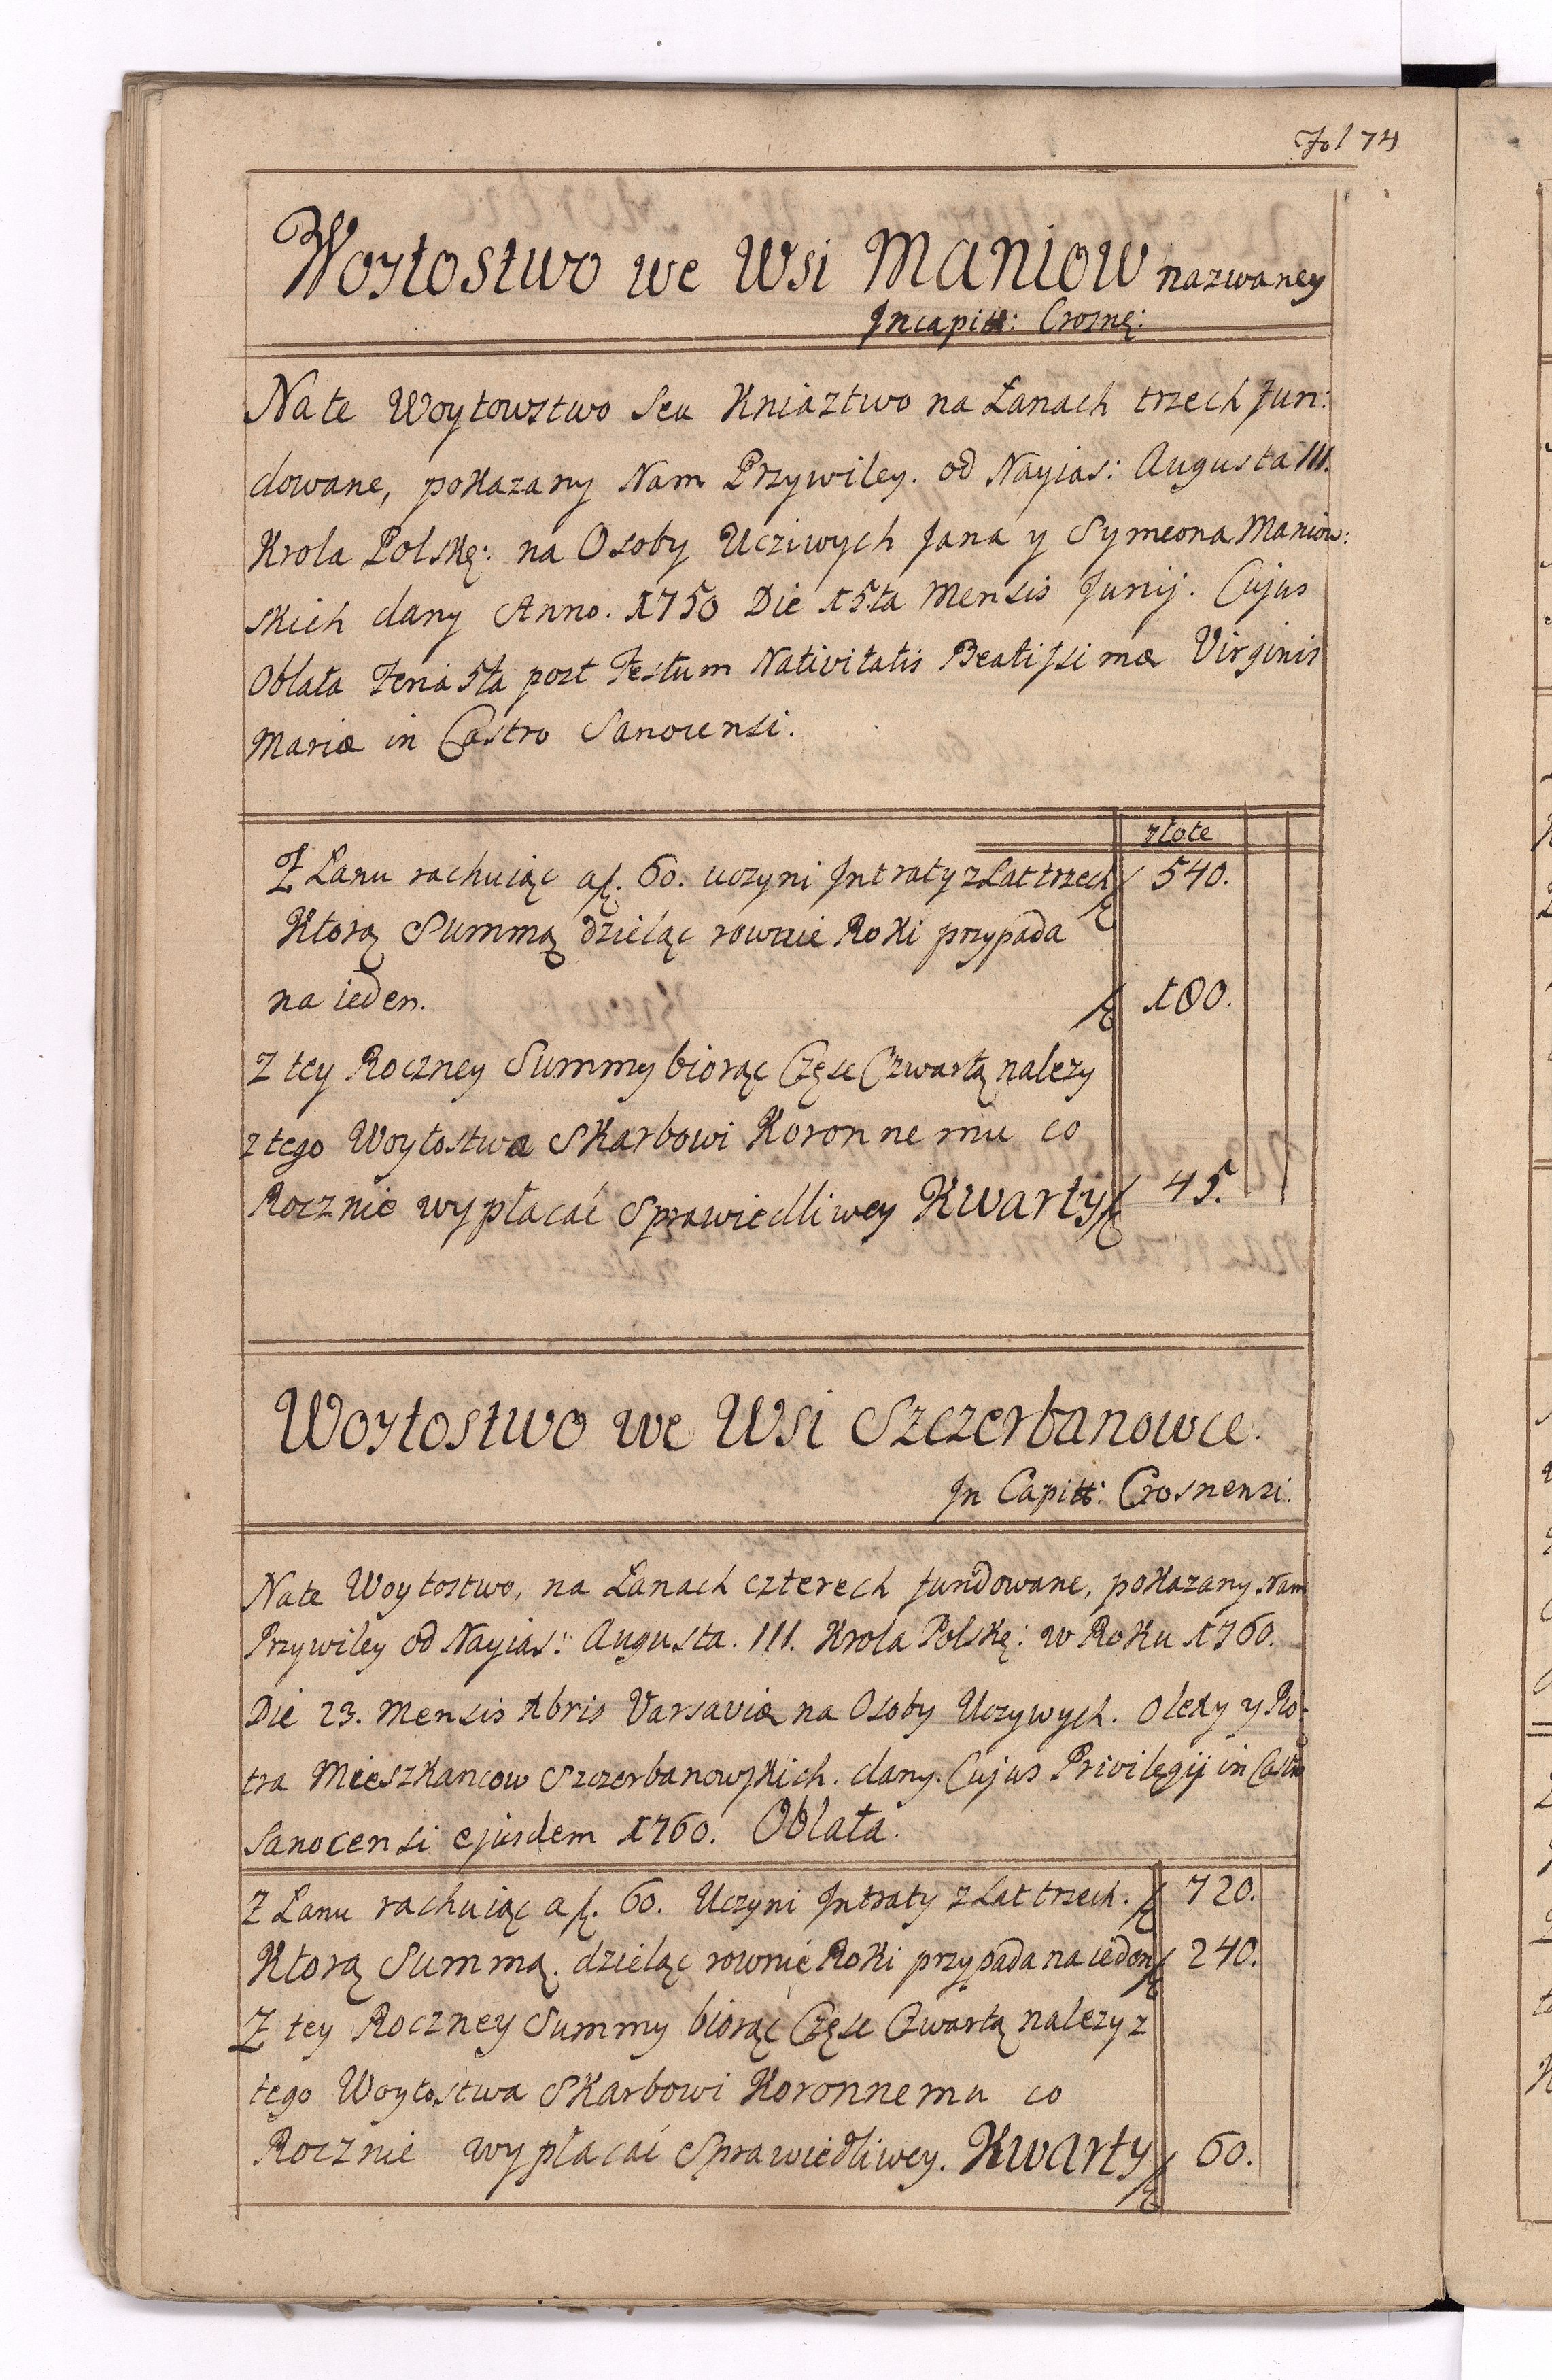 Fol 74
Woytostwo we Wsi Maniow nazwaney
In capitt: Crosnę:
Na te Woytowstwo seu Kniaztwo na Łanach trzech fun:
dowane, pokazany Nam Przywiley. od Nayias: Augusta III.
Krola Polskę: na Osoby Ucziwych Jana y Symeona Maniow:
skich dany Anno. 1750 Die 15ta Mensis Junij. Cujus
Oblata Feria 5ta post Festum Nativitatis Beatissimæ Virginis
Mariæ in Castro Sanocensi.
złote
Z Łanu rachuiąc a f. 60. uczyni Intraty z Lat trzech f 540.
Ktorą Summą dzieląc rownie Roki przypada
na ieden. f 180.
Z tey Roczney Summy biorąc Częsc Czwartą nalezy
z tego Woytostwa Skarbowi Koronnemu co
Rocznie wypłacać Sprawiedliwey Kwarty f 45.
Woytostwo we Wsi Szczerbanowce.
In Capitt: Crosnensi.
Na te Woytostwo, na Łanach czterech fundowane, pokazany Nam
Przywiley od Nayias: Augusta. III. Krola Polskę: w Roku 1760.
Die 23. Mensis Xbris Varsaviæ na Osoby Uczywych. Olexy y Po-
tra Mieszkancow Szczerbanowskich. dany. Cujus Privilegij in Castro
Sanocensi ejusdem 1760. Oblata.
Z Łanu rachuiąc a f. 60. Uczyni Intraty z Lat trzech. f 720.
Ktorą Summą. dzieląc rownie Roki przypada na ieden f 240.
Z tey Roczney Summy biorąc Częsc Czwartą nalezy z
tego Woytostwa Skarbowi Koronnemu co
Rocznie wypłacać Sprawiedliwey. Kwarty f 60.